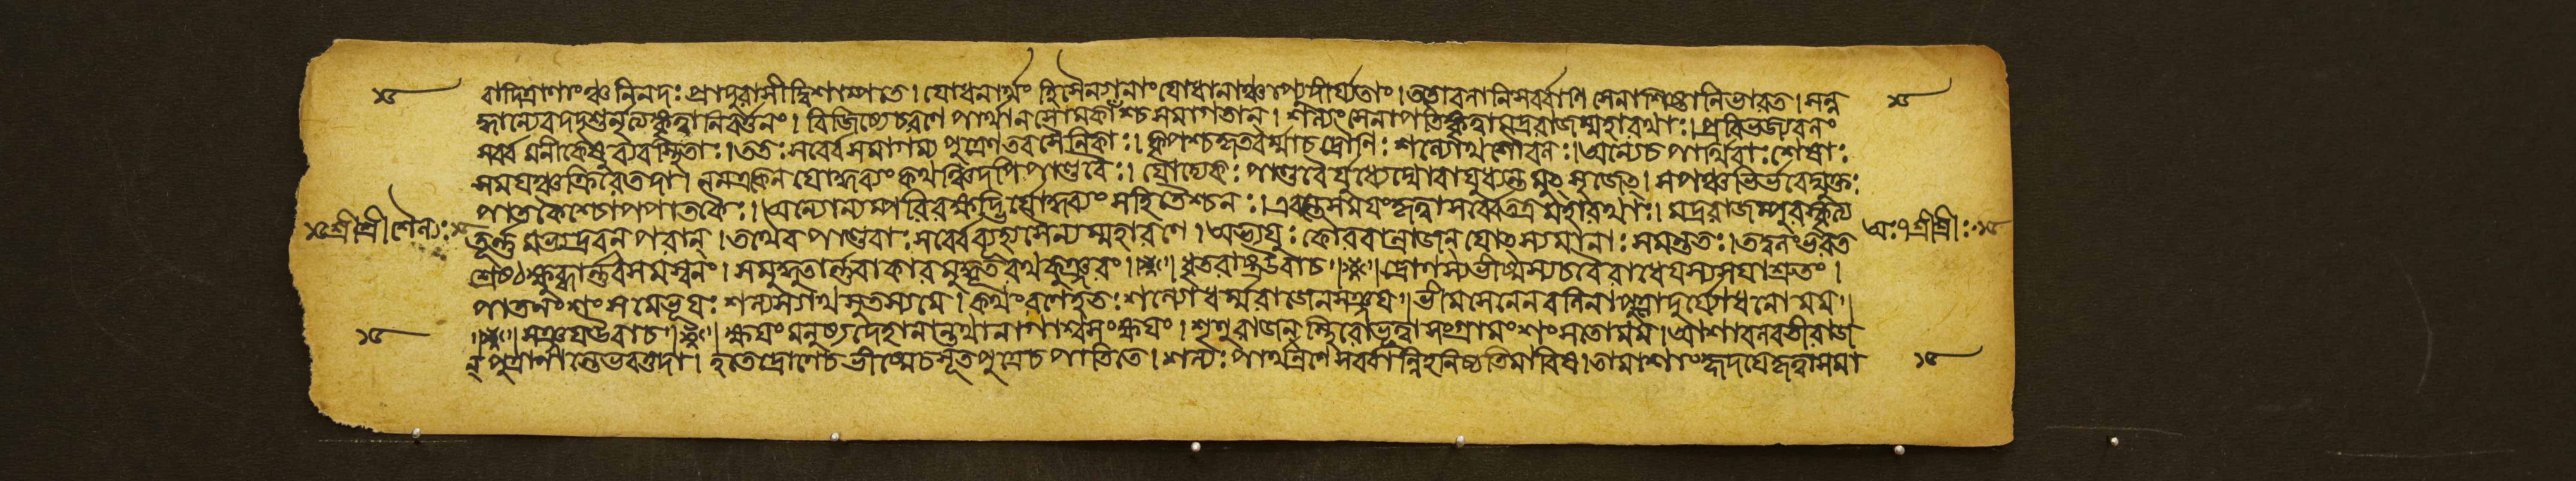 বাদিত্রাণাংঞ্চ নিনদঃ প্রাদুরাসীদ্বিশাম্পতে। যোধনার্থং হি সৈনগনাং যোধানাঞ্চাপ্যুদীর্য্যতাং। ততোবলানিসর্ব্বাণি সেনাশিষ্টানিভারত। সন্ন
দ্ধান্যেবদদৃশুর্মৃত্যুঙ্কৃত্বানিবর্ত্তনং। শল্যংসেনাপতিঙ্কৃত্বামদ্ররাজম্মহারথাঃ। প্রবিভজ্যবলং
সর্ব্বমনীকেষু ব্যবস্থিতাঃ। ততঃ সর্ব্বে সমাগম্য পুত্রেণ তব সৈনিকাঃ। কৃপশ্চকৃতবর্ম্মাচ দ্রৌণিঃ শল্যোথসৌবলঃ। অন্যেচ পার্থিবাঃ শেষাঃ
সময়ঞ্চক্রিরেতদা। নন একেন যোদ্ধব্যং কথঞ্চিদপি পাণ্ডবৈঃ। যোহ্যেকঃ পাণ্ডবৈর্যুধ্যেদ্যোবাযুধ্যন্তমুৎসৃজেৎ। সপঞ্চভির্ভবেদ্যুক্তঃ
পাতকৈশ্চোপপাতকৈঃ। অন্যোন্যম্পরিরক্ষদ্ভির্যোদ্ধব্যং সহিতৈশ্চনঃ। এবন্তেসময়ংকৃত্বাসর্ব্বেতত্রমহারথাঃ। মদ্ররাজম্পুরস্কৃত্য
তূর্ণমভ্যদ্রবন পরান্। তথৈব পাণ্ডবাঃ সর্ব্বে ব্যূহ্যসৈন্যম্মহারণে। অভ্যযুঃ কৌরবান্রাজন্ যোৎস্যমানাঃ সমন্ততঃ। তদ্বলংভরত
শ্রেষ্ঠক্ষুব্ধার্ণবসমস্বনং। সমুদ্ধুতার্ণবাকারমুদ্ধূতরথকুঞ্জরং। ধৃতরাষ্ট্রউবাচ। দ্রোণস্যভীষ্মস্যচবৈরাধেয়স্যময়াশ্রুতং।
পাতনংশংসমেভূয়ঃ শল্যস্যাথসুতস্যমে। কথংরণেহতঃ শল্যোধর্ম্মরাজেনসঞ্জয়। ভীমসেনেনবলিনাপুত্রোদুর্যোধনোমম।
সঞ্জয়উবাচ। ক্ষয়ংমনুষ্যদেহানান্তথানাগাশ্বসংক্ষয়ং। শৃণুরাজন্স্থিরোভূত্বাসংগ্রামংশংসতোমম। আশাবলবতীরাজ
ন্পুত্রাণান্তেভবত্তদা। হতেদ্রোণেচভীষ্মেচসূতপুত্রেচপাতিতে। শল্যঃ পার্থান্রণেসর্ব্বান্নিহনিষ্যতিমারিষ। তামাশাংহৃদয়েকৃত্বাসমা
শ্রীশ্রীশল্যঃ
১৫